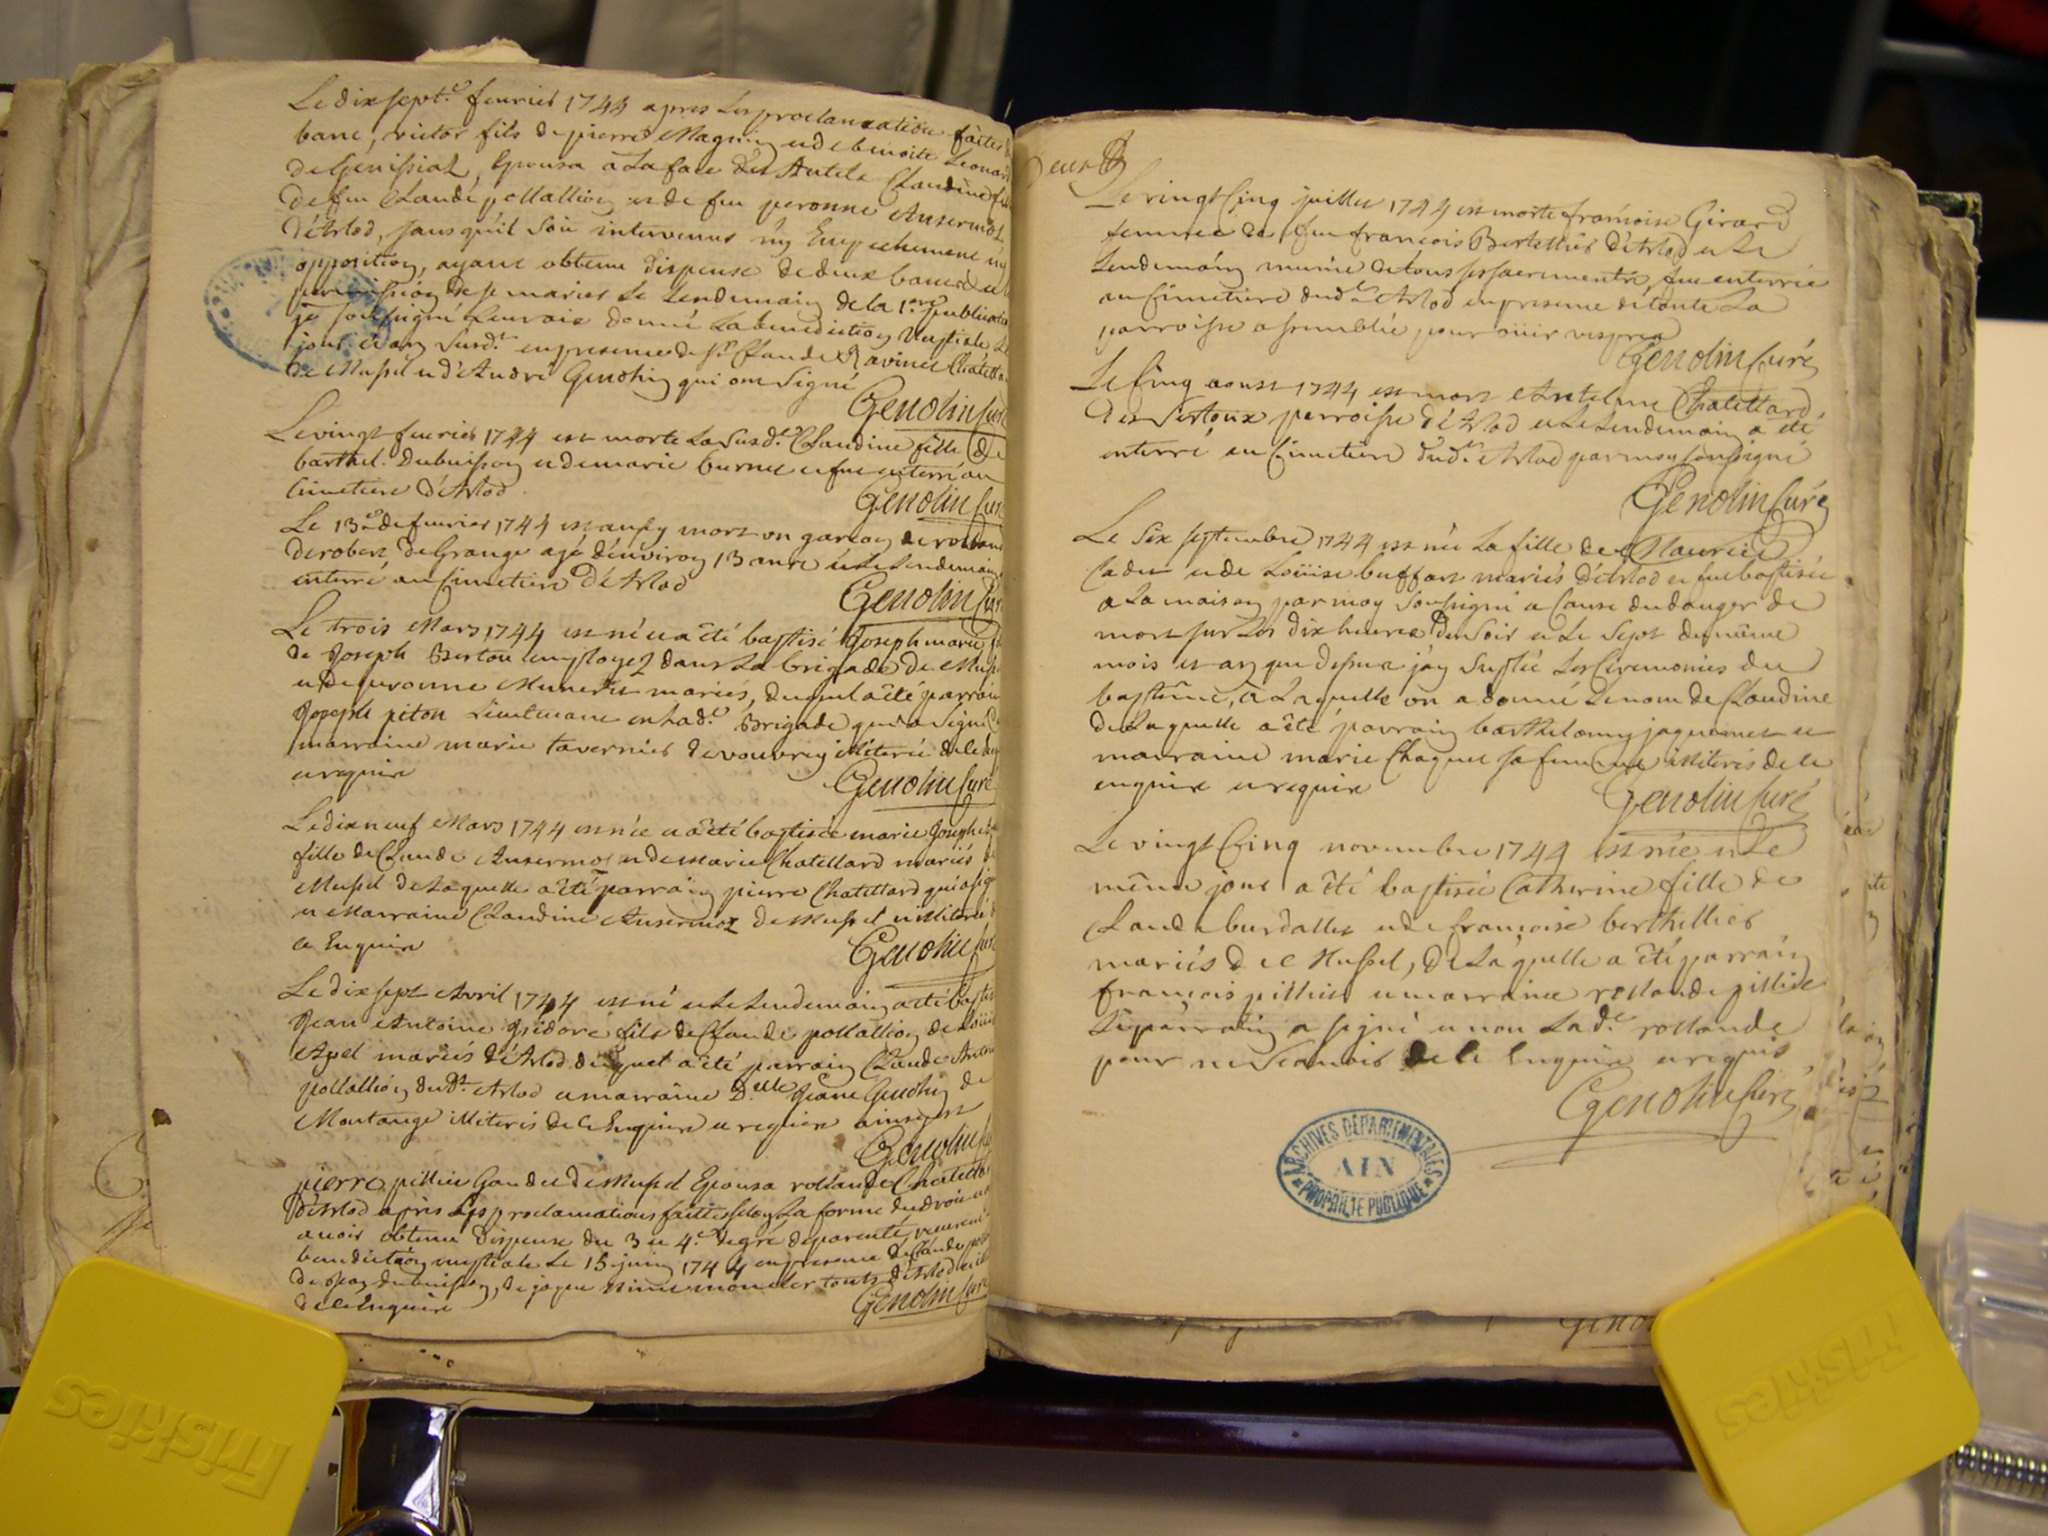 Le dix sept.e feurier 1744 apres les proclamation faites
banc, victor fils de pierre Magnin et de benoite Leonard
de Genissiat, Epousa a la face des Autels Claudine
de feu Claude pollallion et de feu peronne Ansermoz
d'Arlod, sans qu'il soit intervenus ny Empechement ny
opposition, ayant obtenu dispense de deux bancs de
permission de se marier le Lendemain de la 1.ere publication
je soussigné Leur ait donné La benediction Nuptiale
jour et an susd.t en presence de S.r Claude Ravinet Chatell
de Mussel et d'André Genolin qui ont signé
Genolin Curé
Le vingt feurier 1744 est morte la susd.e Claudine fille de
barthel. Dubuisson et de marie burnet et fut enterré au
Cimetiere d'Arlod
Genolin Curé
Le 13.e de feurier 1744 est aussy mort un garcon
de robert De Grange agé d'environ 13 ans et le Lendemain
enterré au Cimetiere d'Arlod
Genolin Curé
Le trois Mars 1744 est né et a été baptisé Joseph marie
de Joseph Berton employez dans la brigade de Mussel
et de peronne mariés, duquel a été parrain
Joseph piton Lieutenant en lad.e Brigade qui a signé
marraine marie tavernier de vouvrey illiterée de ce
enquise
Genolin Curé
Le dix neuf Mars 1744 est née et a été baptisée marie Josephe
fille de Claude Ansermoz et de marie Chatellard mariés
Mussel de laquelle a été parrain pierre Chatellard qui a signé
et Marraine Claudine Ansermoz de Mussel illiterée
ce Enquise
Genolin Curé
Le dix sept Avril 1744 est né et le Lendemain a été baptisé
Jean Antoine Isidore fils de Claude pollallion de Louise
Apel mariés d'Arlod duquel a été parrain Claude Antoine
pollallion dud.t Arlod et marraine D.elle Jeane Genolin de
Montange illiteris de ce Enquise et requise
Genolin
pierre pilliet Gaudet de Mussel Epousa rollande Chatellard
d'Arlod après les proclamations faittes selon la forme du droit et
avoir obtenu dispense du 3 et 4.e degré de parenté, receurent
benediction nuptiale le 15 juin 1744 en presence de Claude
de Dubuisson, de touts d'Arlod
de ce Enquise
Genolin Curé
Le vingt Cinq juillet 1744 est morte francoise Girard
femme de feu francois Bertellier d'Arlod et le
lendemain munie de tous ses sacrements, fut enterrée
au Cimetiere dud.t Arlod en presence de toute La
parroisse assemblée pour ouir vespres
Genolin Curé
Le Cinq aoust 1744 est mort Antelme Chatellard
des Sertoux parroisse d'Arlod et le Lendemain a été
enterré au Cimetiere dud.t Arlod par moy soussigné
Genolin Curé
Le six septembre 1744 est née La fille de Maurice
Cadet et de Loüise buffart mariés d'Arlod et fut baptisée
a la maison par moy soussigné a Cause du danger de
mort sur les dix heures du soir et le sept du même
mois et an que dessus j'ay suplée les Ceremonies du
baptême, a laquelle on a donné le nom de Claudine
de laquelle a été parrain barthelemy jaquemet et
marraine marie Chaquet sa femme illiteris de ce
enquise et requise
Genolin Curé
Le vingt Cinq novembre 1744 est née et le
même jour a été baptisée Catherine fille de
Claude burdallet et de françoise berthellier
mariés de Mussel, de laquelle a été parrain
françois pilliet et marraine rollande pilliet
Le parrain a signé et non Lad.e rollande
pour ne scavoir de ce Enquise et requise
Genolin Curé
ARCHIVES DEPARTEMENTALES
AIN
PROPRIÉTÉ PUBLIQUE
friskies
friskies